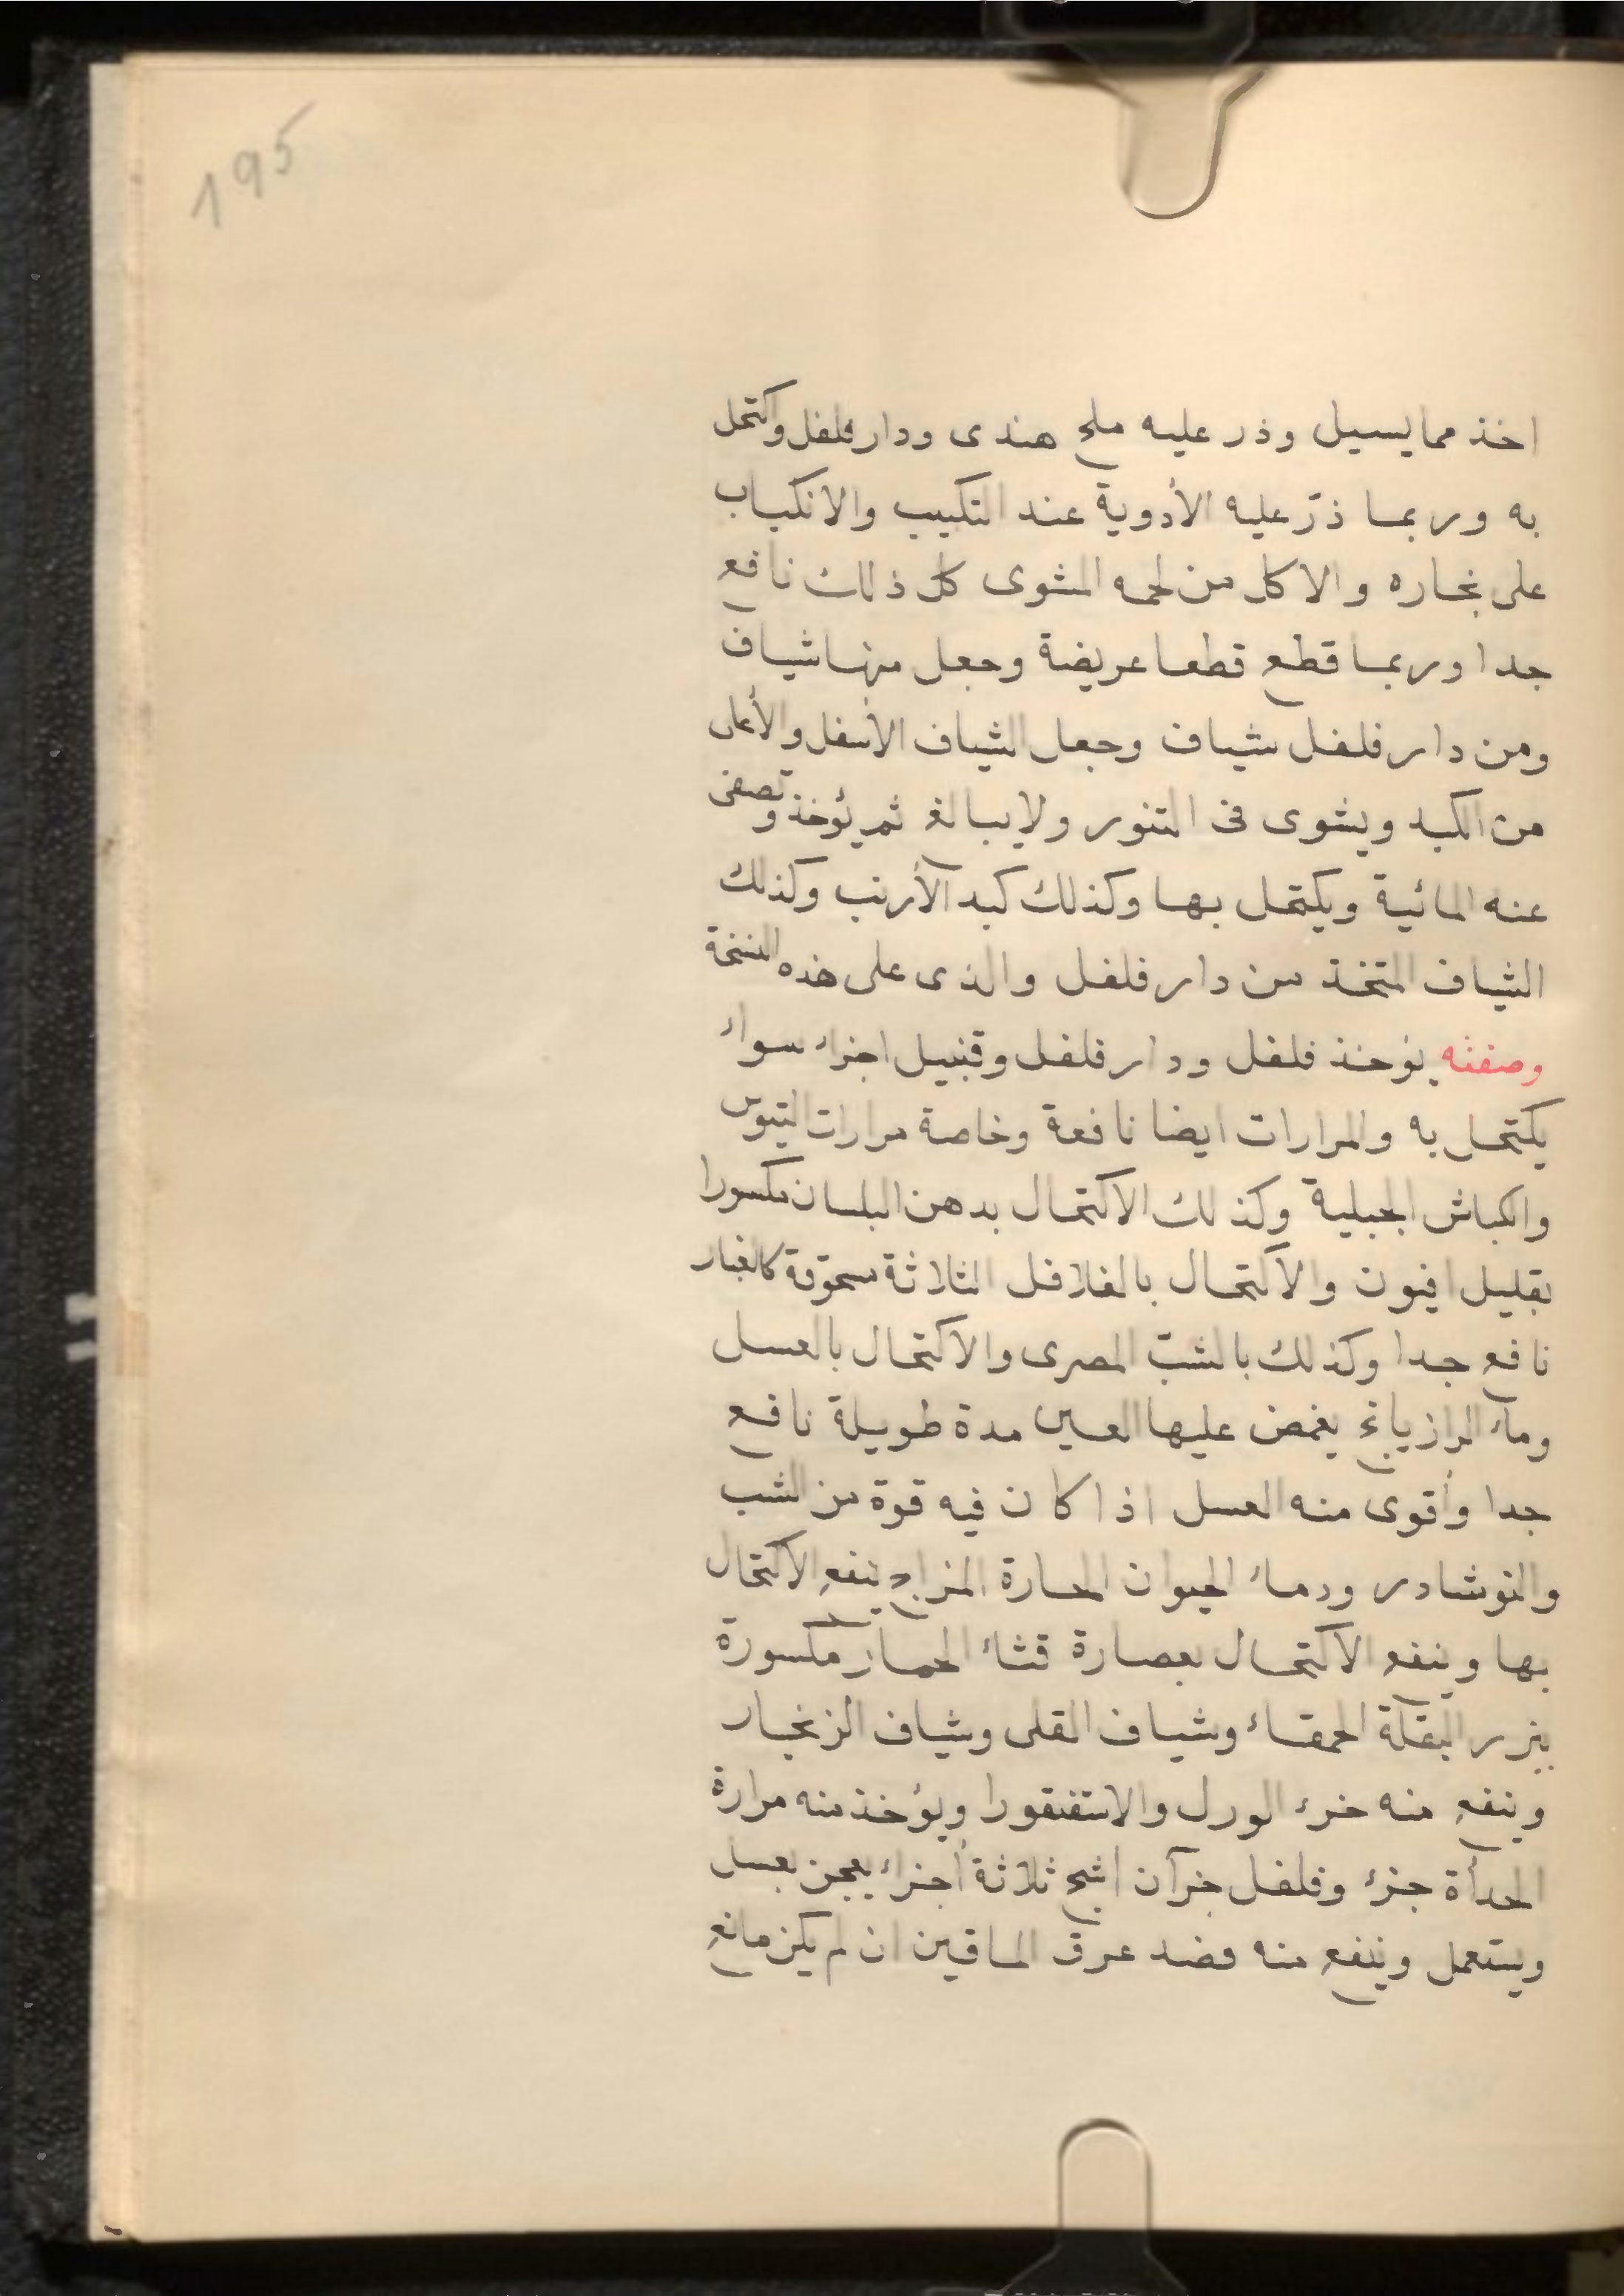 195
اخذ مما يسيل وذر عليه ملح هندى ودار فلفل واكتحل
به وربما ذرّ عليه الأدوية عند التكبيب والانكباب
على بخاره والاكل من لحمه المشوى كل ذلك نافع
جدا وربما قطع قطعا عريضة وجعل منها شياف
ومن دار فلفل شياف وجعل الشياف الأسفل والأعلى
من الكبد ويشوى فى التنور ولا يبالغ ثم يؤخذ وتصفى
عنه المائية ويكتحل بها وكذلك كبد الأرنب وكذلك
الشياف المتخذ من دار فلفل والذى على هذه النسخة
وصفته يؤخذ فلفل ودار فلفل وقنبيل اجزاء سواء
يكتحل به والمرارات ايضا نافعة وخاصة مرارات التيوس
والكباش الجبلية وكذلك الاكتحال بدهن البلسان مكسورا
بقليل افيون والاكتحال بالفلافل الثلاثة مسحوقة كالغبار
نافع جدا وكذلك بالشبّ المصرى والاكتحال بالعسل
وماء الرازيانج يغمض عليها العين مدة طويلة نافع
جدا وأقوى منه العسل اذا كان فيه قوة من الشب
والنوشادر ودماء الحيوان الحارة المزاج ينفع الاكتحال
بها وينفع الاكتحال بعصارة قثاء الحمار مكسورة
ببزر البقلة الحمقاء وشياف القلى وشياف الزنجار
وينفع منه خرء الورل والاستفنقورا ويؤخذ منه مرارة
الحدأة جزء وفلفل جزآن اشج ثلاثة أجزاء يعجن بعسل
ويستعمل وينفع منه فصد عرق الماقين ان لم يكن مانع